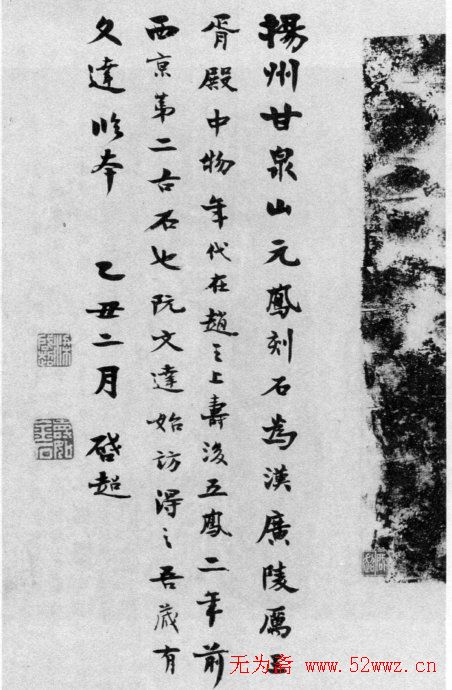 揚州甘泉山元鳳刻石為漢廣陵厲王
胥殿中物年代在趙之上壽後五鳳二年前
西京第二古石也阮文達始訪得之吾藏有
文達本 乙丑二月 啓超
无为斋 www.52wwz.cn